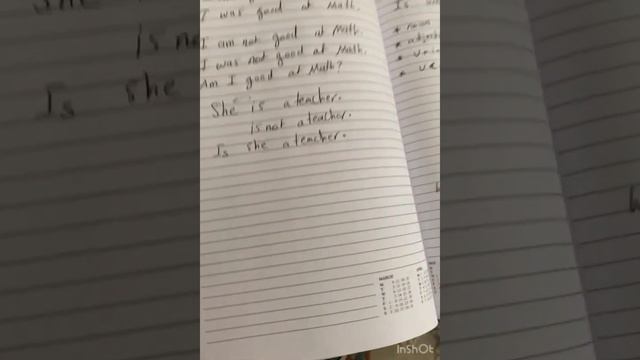 I was good at Math.
I am not good at Math.
I was not good at Math.
Am I good at Math?
She is a teacher.
is not a teacher.
Is she a teacher.
Is
* noun
* adje
* V+in
MARCH
InShOt